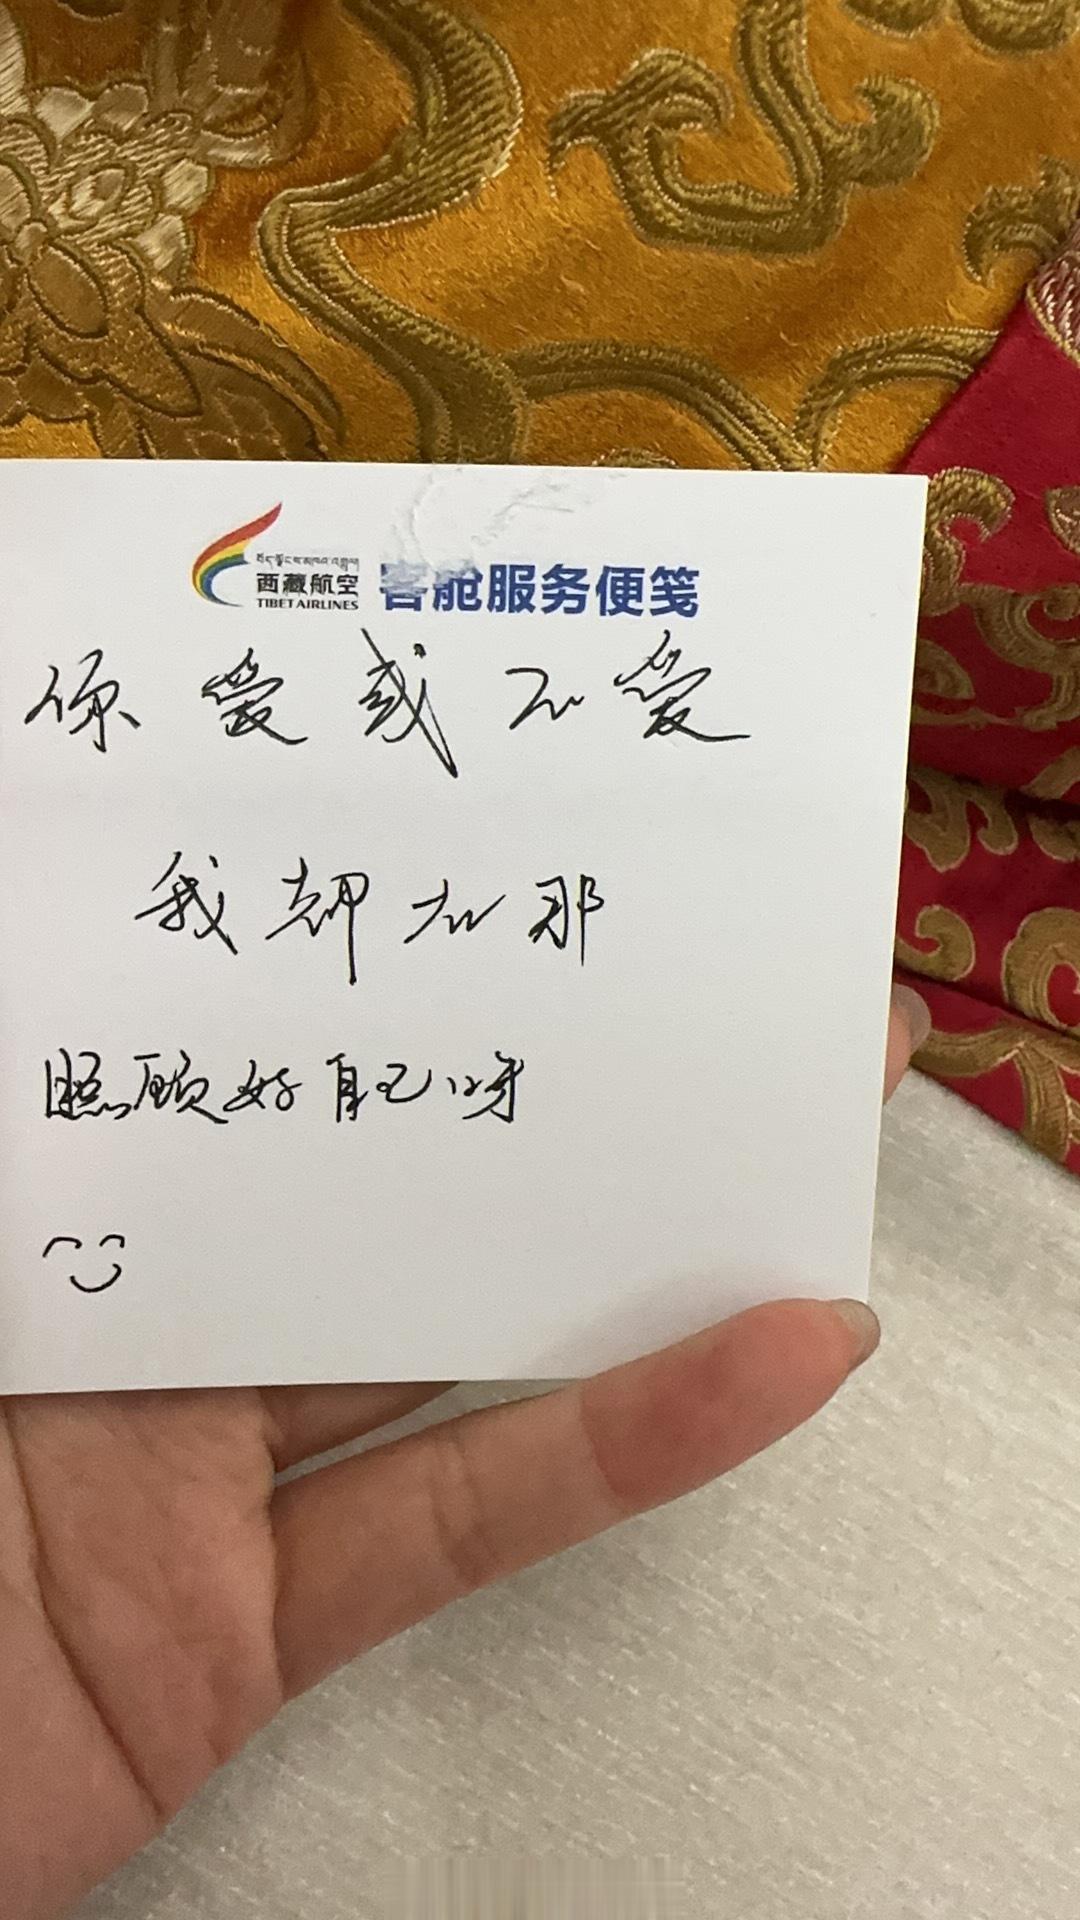 西藏航空
TIBET AIRLINES
客舱服务便笺
你爱或不爱
我都在那
照顾好自己呀